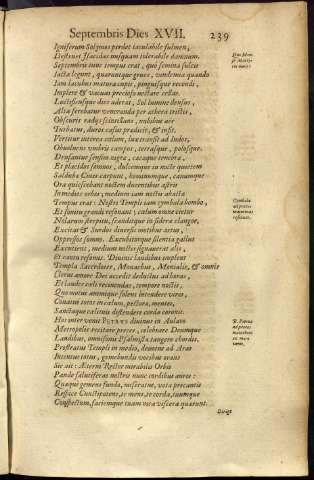 Septembris Dies XVII. 239
Igniferum Solymos perdet
Destruet Isacidas nusquam tolerabile damnum.
Septembris tunc tempus erat, quo semina sulcis
Iacta legunt, quarantque greges, vindemia quando
Iam lacubus matura cupit, pinguisque recondi,
Implere & vacuas precioso nectare testas.
Luctisonusque dies aderat, Sol lumine densus,
Alta ferebatur veneranda per athera tristis,
Obscuris radijs scintillans, nubilus aer
Turbatus, duros casus praducit, & infit.
Vertitur interea cœlum, lux transit ad Indos,
Obvoluens umbris campos, terrasque, polosque.
Densantur sensim nigra, cacaque tenebra,
Et placidos somnos, dulcemque in nocte quietem
Saldubæ Ciues carpunt, hominumque, canumque
Ora quiescebant noctem ducentibus astris
In medios orbes; medium iam noctis abacta
Tempus erat: Nostri Templi iam cymbala bombo,
Et sonitu grandè resonant; cœlum omne cietur
Nolarum strepitu, scanditque in sidera clangor,
Excitat & Surdos divenisi nontibus astus,
Oppressos somno. Excubitorque silentia gallus
Excutiens, medium noctis signauerat alis,
Et cantu resonus. Divinis laudibus implent
Templa Sacerdotes, Monachus, Monialis, & omnis
Clerus amore Dei accedit deductus ad horas,
Et laudes cœli recinendas, tempore noctis,
Quo motus animique solent intendere vires,
Conatus totis in cœlum, pectora, mentes,
Sanctaque cœlesti distendere corda canenti.
Hos inter venit PETRVS divinus in Aulam
Metropolis recitare preces, celebrare Deumque
Laudibus, omnisoni Psalmista tangere chordis.
Prostratus Templi in medio, domino ad Aras
Intentus totus, gemebundis vocibus orans
Sic ait: Æterni Rector mirabilis Orbis
Pande salutiferas nostris nunc cordibus aures:
Quaque gemens fundo, miseratne, vota precantis
Respice Cunctipotens, te mens, te corda, suumque
Conspectum, faciemque tuam mea viscera quarunt.
Dirige
Quo Mense
Martyrium
Cymbala
ad preces
matutinas
resonant.
D. Petrus
ad preces
matutinas
it nocte